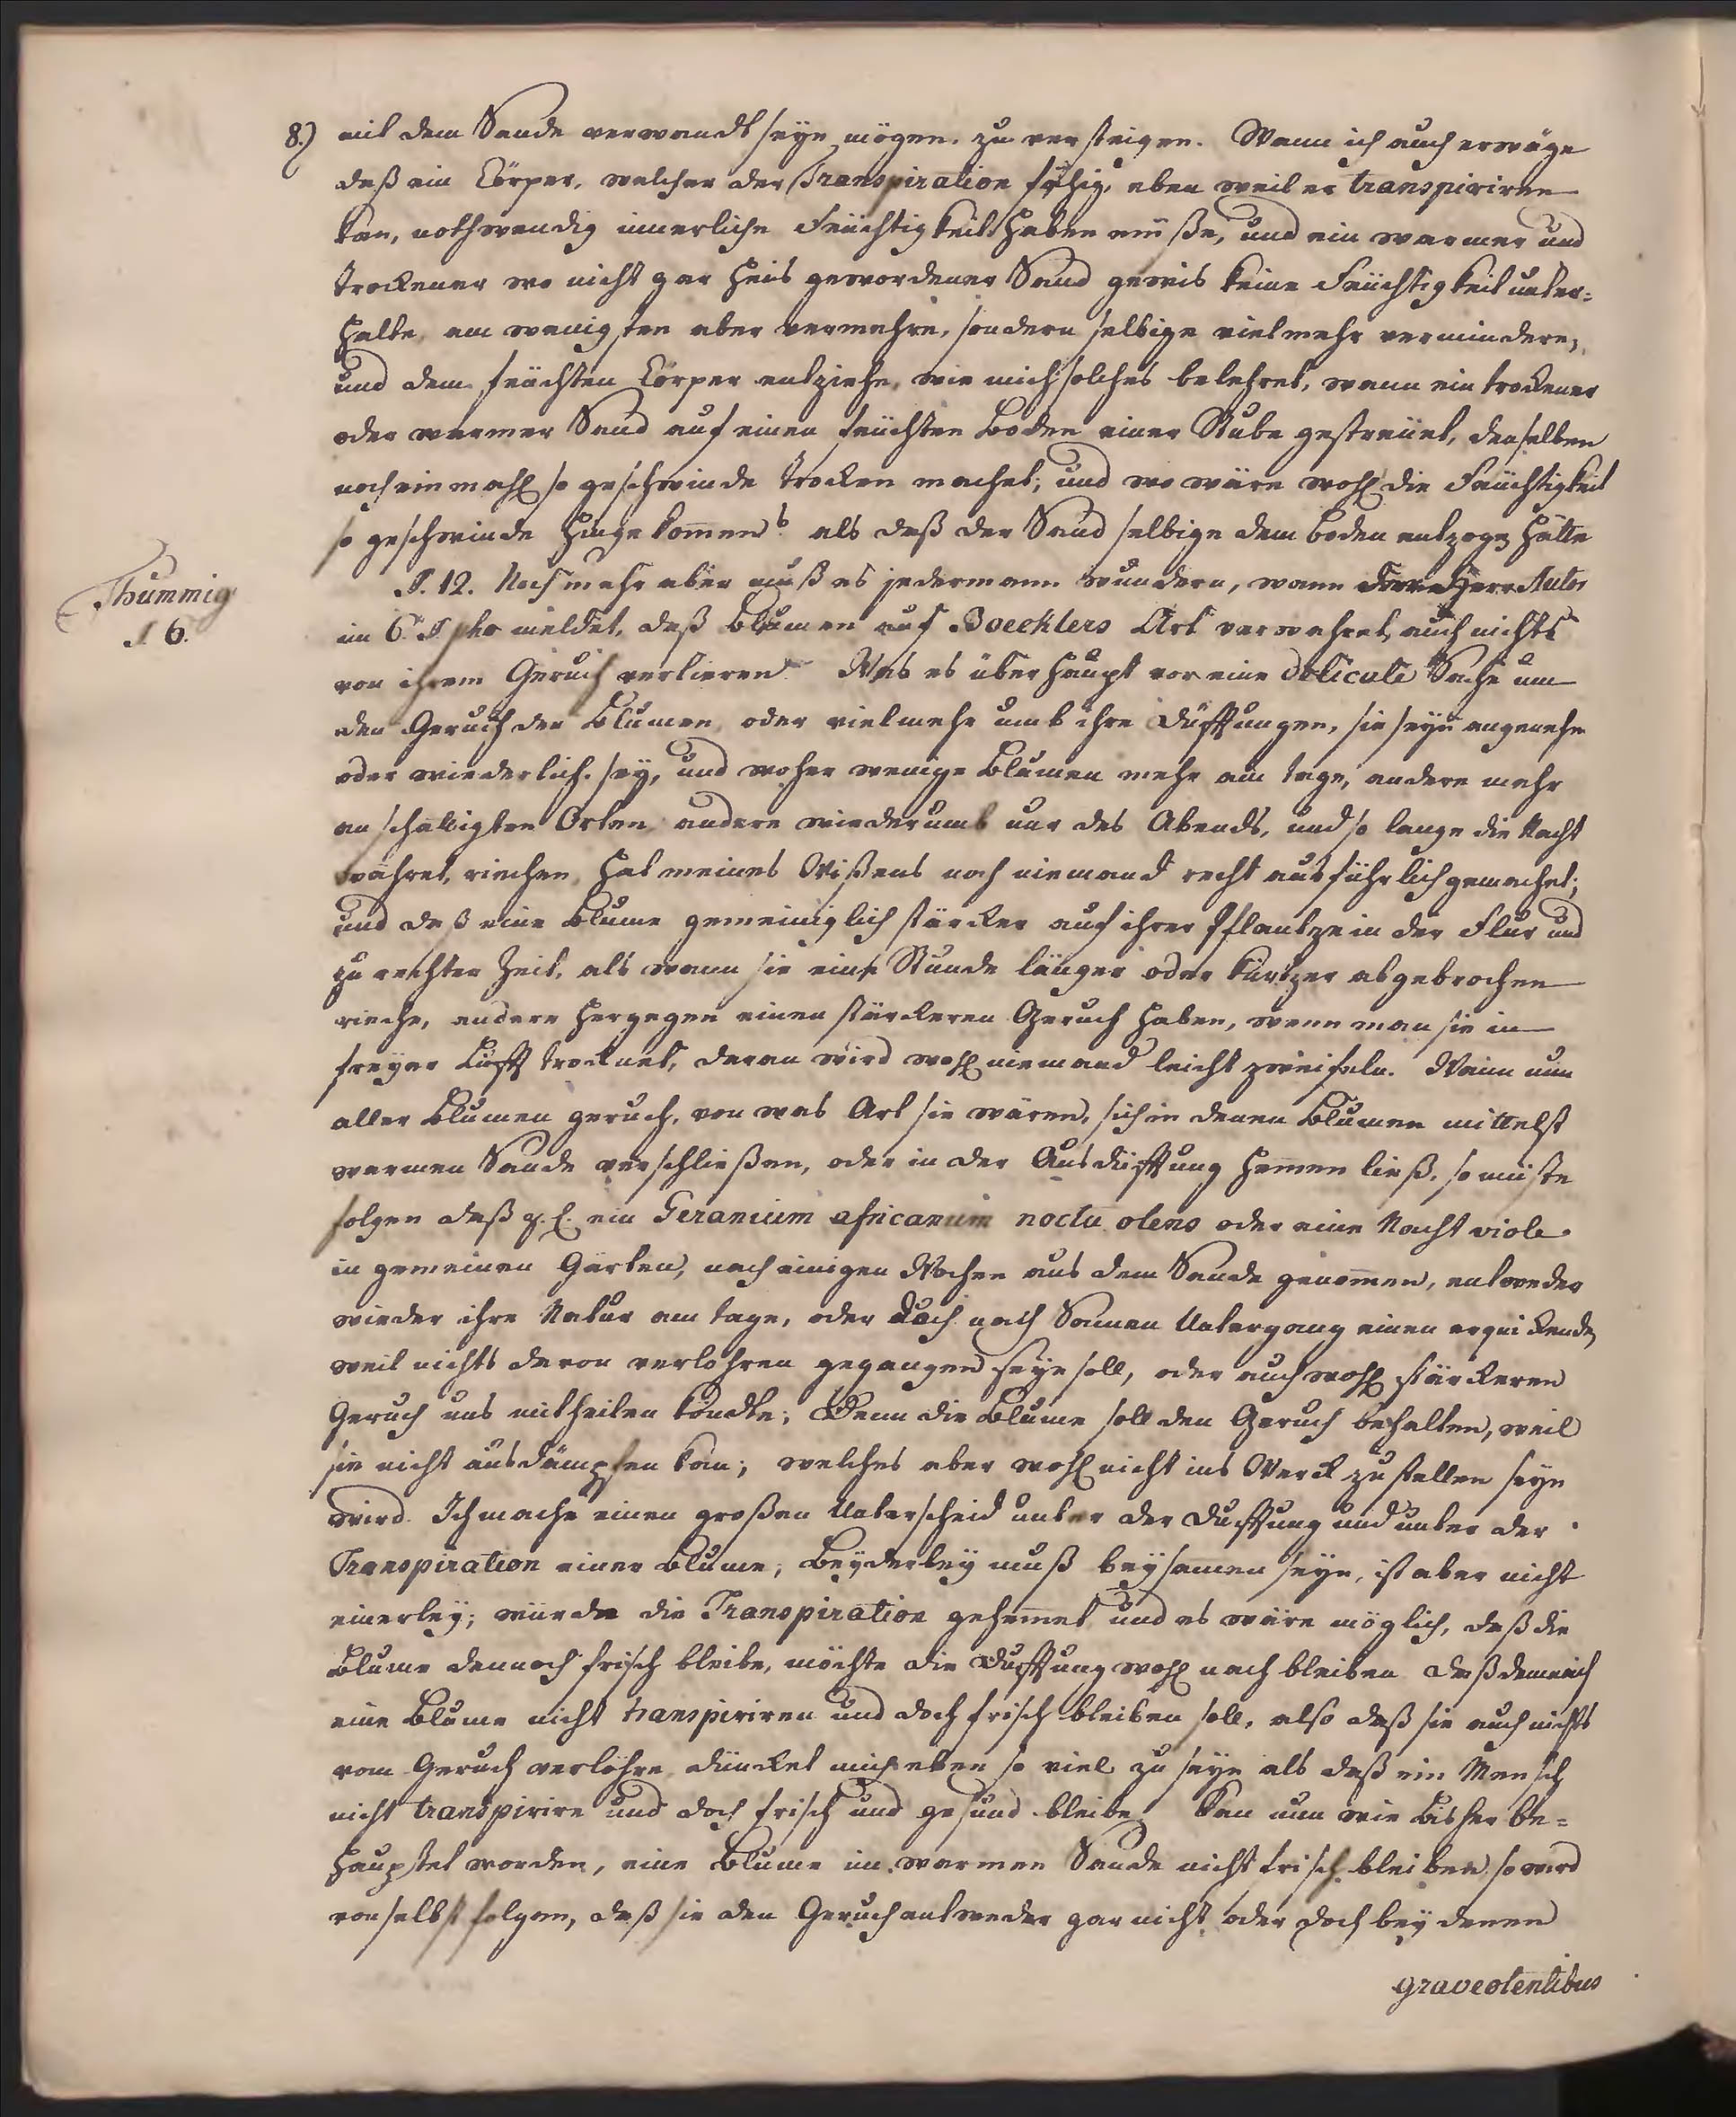 8.) mit dem Sande verwandt seyn mögen, zu versteigen. Wann ich auch erwäge
daß ein Cörper, welcher der Transpiration fähig, eben weil er transpiriren
kan, nothwendig innerliche Feüchtigkeit haben müße, und ein warmer und
trockener wo nicht gar heis gewordener Sand gewis keine Feüchtigkeit unter=
halte, am wenigsten aber vermehre, sondern selbige vielmehr vermindere,
und dem feüchten Cörper entziehe, wie mich solches belehret, wann ein trockener
oder warmer Sand auf einen feüchten Boden einer Stube gestreüet, denselben
noch ein mahl so geschwinde trocken machet; und wo wäre wohl die Feüchtigkeit
so geschwinde hingekommen? als daß der Sand selbige dem Boden entzogen hätte
Thummig
§ 6.
§. 12. Noch mehr aber muß es jedermann wundern, wann Herr Autor
im 6. § pho meldet, daß Blumen auf Boecklers Art verwahret, auch nichts
von ihrem Geruch verlieren. Was es überhaupt vor eine delicate Sache um
den Geruch der Blumen, oder vielmehr umb ihre Düfftungen, sie seyn angenehm
oder wiederlich, sey, und woher wenige Blumen mehr am tage, andere mehr
an schattigten Orten, andere wiederumb nur des Abends, und so lange die Nacht
währet, riechen, hat meines Wißens noch niemand recht ausführlich gemachet;
und daß eine Blume gemeiniglich stärcker auf ihrer Pflantze in der Flur und
zu rechter Zeit, als wann sie eine Stunde länger oder kürtzer abgebrochen
rieche, andere hergegen einen stärckeren Geruch haben, wenn man sie in
freyer Lufft trocknet, daran wird wohl niemand leicht zweifeln. Wann nun
aller Blumen geruch, von was Art sie wären, sich in denen Blumen mittelst
warmen Sande verschließen, oder in der Ausdüfftung hemmen ließ, so müste
folgen daß z. E. ein Geranium africanum noctu olens oder eine Nacht viole
in gemeinen Gärten, nach einigen Wochen aus dem Sande genommen, entweder
wieder ihre Natur am tage, oder doch nach Sonnen Untergang einen erquickenden,
weil nichts davon verlohren gegangen seyn soll, oder auch wohl stärckeren
Geruch uns mitheilen köndte; Denn die Blume soll den Geruch behalten, weil
sie nicht ausdämpfen kan; welches aber wohl nicht ins Werck zu stellen seyn
wird. Ich mache einen großen Unterscheid unter der Dufftung und unter der
Transpiration einer Blume; Beyderley muß beysamen seyn, ist aber nicht
einerley; würde die Transpiration gehemmet und es wäre möglich, daß die
Blume dennoch frisch bleibe, möchte die Dufftung wohl nach bleiben daß demnach
eine Blume nicht transpiriren und doch frisch bleiben soll, also daß sie auch nichts
vom Geruch verlöhre, düncket mich eben so viel zu seyn als daß ein Mensch
nicht transpirire und doch frisch und gesund bleibe. Kan nun wie bisher be=
hauptet worden, eine Blume im warmen Sande nicht frisch bleiben, so wird
von selbst folgen, daß sie den Geruch entweder gar nicht oder doch bey denen
graveolentibus